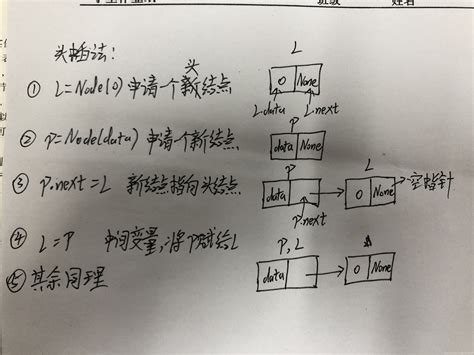 班级 姓名
头插法:
L
① L=Node(0) 申请一个新结点
头
0 None
L.data L.next
② p=Node(data) 申请一个新结点
p
data None
③ p.next=L 新结点指向头结点
p L
data 0 None 空指针
p.next
④ L=p 中间变量,将p赋给L
p,L
data 0 None
⑤ 其余同理